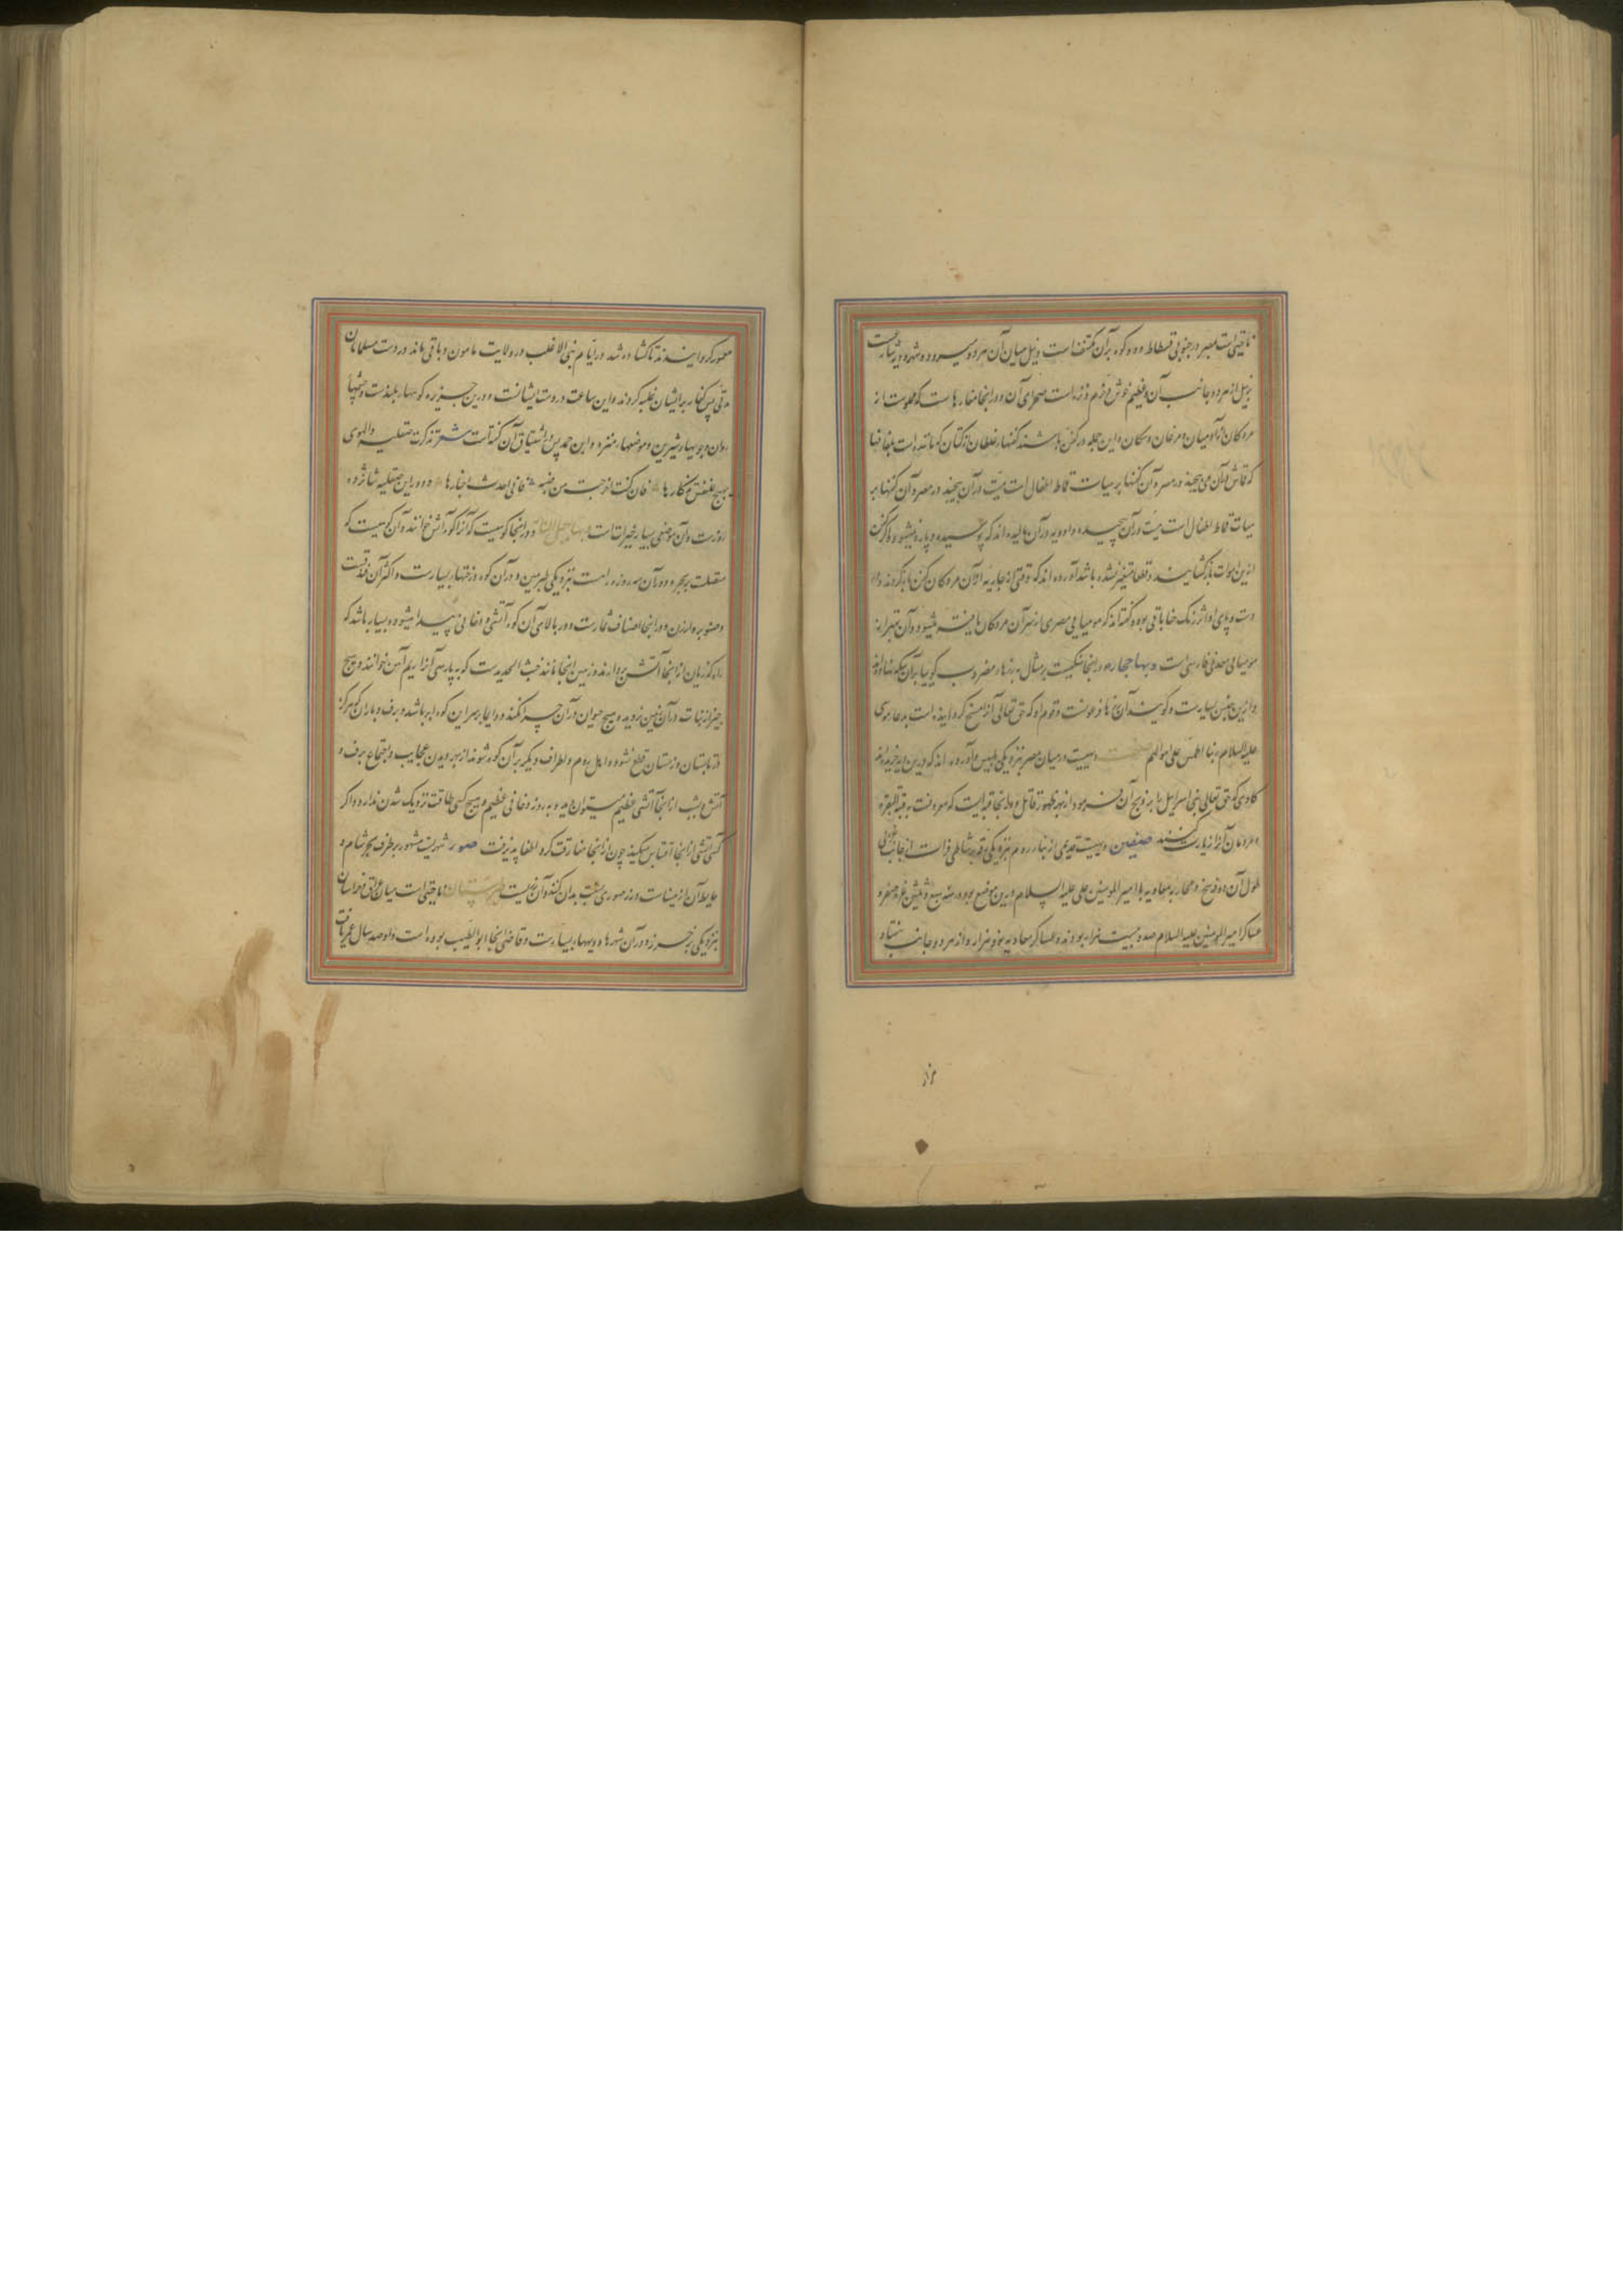 ناحیتی است بمصر در جنوبی فسطاط و دو کوه بر آن مکتنف است و نیل میان آن هر دو میرود و شهر و دیه بسیارست
بر نیل از هر دو جانب آن و عظیم خوش و خرم و نزه است صحرای آن و در آنجا مغارها است که مملوست از
مردگان از آدمیان و مرغان و سگان و این جمله در کفن باشند کفنهاء غلیظ از کتان که مانند است بلفافها
که قماش در آن می پیچند در مصر و آن کفنها بر هیأت قماط اطفال است میت در آن پیچند در مصر و آن کفنها بر
هیأت قماط اطفال است میت در آن پیچیده و ادویه در آن مالیده اند که پوسیده و پاره نمیشود و اگر کفن
ازین اموات بازگشایند قطعا متغیر نشده باشد آورده اند که وقتی از جاریه از آن مردگان کفن باز کردند و از
دست و پای او اثر رنگ حنا باقی بود و گفته اند که مومیایی مصری از سر آن مردگان یافته میشود و آن بهتر از
مومیایی معدنی فارسی است و بها حجاره در آنجا سنگیست بر مثال دینارهاء مضروب گوییا بر آن سکه نهاده اند
و ازین جنس بسیارست و گویند آن دینارها فرعونست و قوم او که حق تعالی آنرا مسخ کرده است بدعاء موسی
علیه السلام ربنا اطمس علی اموالهم دیهیست در میان مصر نزدیکی بلبیس و آورده اند که درین دیه خریده اند
گاوی که حق تعالی بنی اسرائیل را بذبح آن فرمود از بهر ظهور قاتل و در آنجا قبه ایست که معروفست بقبة البقره
و مردمان آنرا زیارت کنند صفین دیهیست قدیمی از بناء روم نزدیکی رقه بر شاطی فرات از جانب غربی
طول آن ده فرسخ و محاربه معاویه با امیر المومنین علی علیه السلام درین موضع بود در سنه سبع و ثلثین غره صفر و
عساکر امیر المومنین علیه السلام صد و بیست هزار بودند و عساکر معاویه نود هزار و از هر دو جانب هفتاد
معمور کردانیدند تا کشاده شد در ایام بنی الاغلب در ولایت مامون و باقی ماند در دست مسلمانان
مدتی پس کفار بر ایشان غلبه کردند و این ساعت در دست ایشانست و درین جزیره کوههاء بلندست و چشمهاء
روان و جویهاء شیرین و موضعهاء منزه و ابن حمدیس در اشتیاق آن گفته است شعر تذکرت صقلیة والهوی
یهیج للنفس تذکارها فان کنت اخرجت من جنة فانی احدث اخبارها و دور این صقلیه شانزده
روزست و آن موضعی بسیار خیرات است و بها جبل النار و در آنجا کوهیست که آنرا کوه آتش خوانند و آن کوهیست که
متصلست ببحر و دور آن سه روزه راهست نزدیکی طبرمین و در آن کوه درختهاء بسیارست و اکثر آن فندقست
و صنوبر و ارزن و در آنجا اصناف ثمارست و در بالای آن کوه آتشی و دخانی پیدا میشود و بسیار باشد که
راه گذریان از آنجا آتش بردارند و زمین آنجا مانند خبث الحدیدست که بپارسی آنرا ریم آهن خوانند و هیچ
چیز از نبات در آن زمین نروید و هیچ حیوان در آن چرا نکند و دایما بر سر این کوه ابر باشد و برف و باران که هرگز
در تابستان و زمستان قطع نشود و اهل روم و اطراف دیگر بر آن کوه شوند از بهر دیدن عجایب و اجتماع برف و
آتش و بشب از آنجا آتشی عظیم میتوان دید و بروز دخانی عظیم و هیچ کسی طاقت نزدیک شدن ندارد و اگر
کسی آتشی از آنجا اقتباس میکند چون از آنجا مفارقت کرد اطفا پذیرفت صور شهریست مشهور بر طرف بحر شام و
نزدیکی خزر و در آن شهرها و دیههاء بسیارست و قاضی آنجا ابو الطیب بوده است و او صد سال عمر یافت